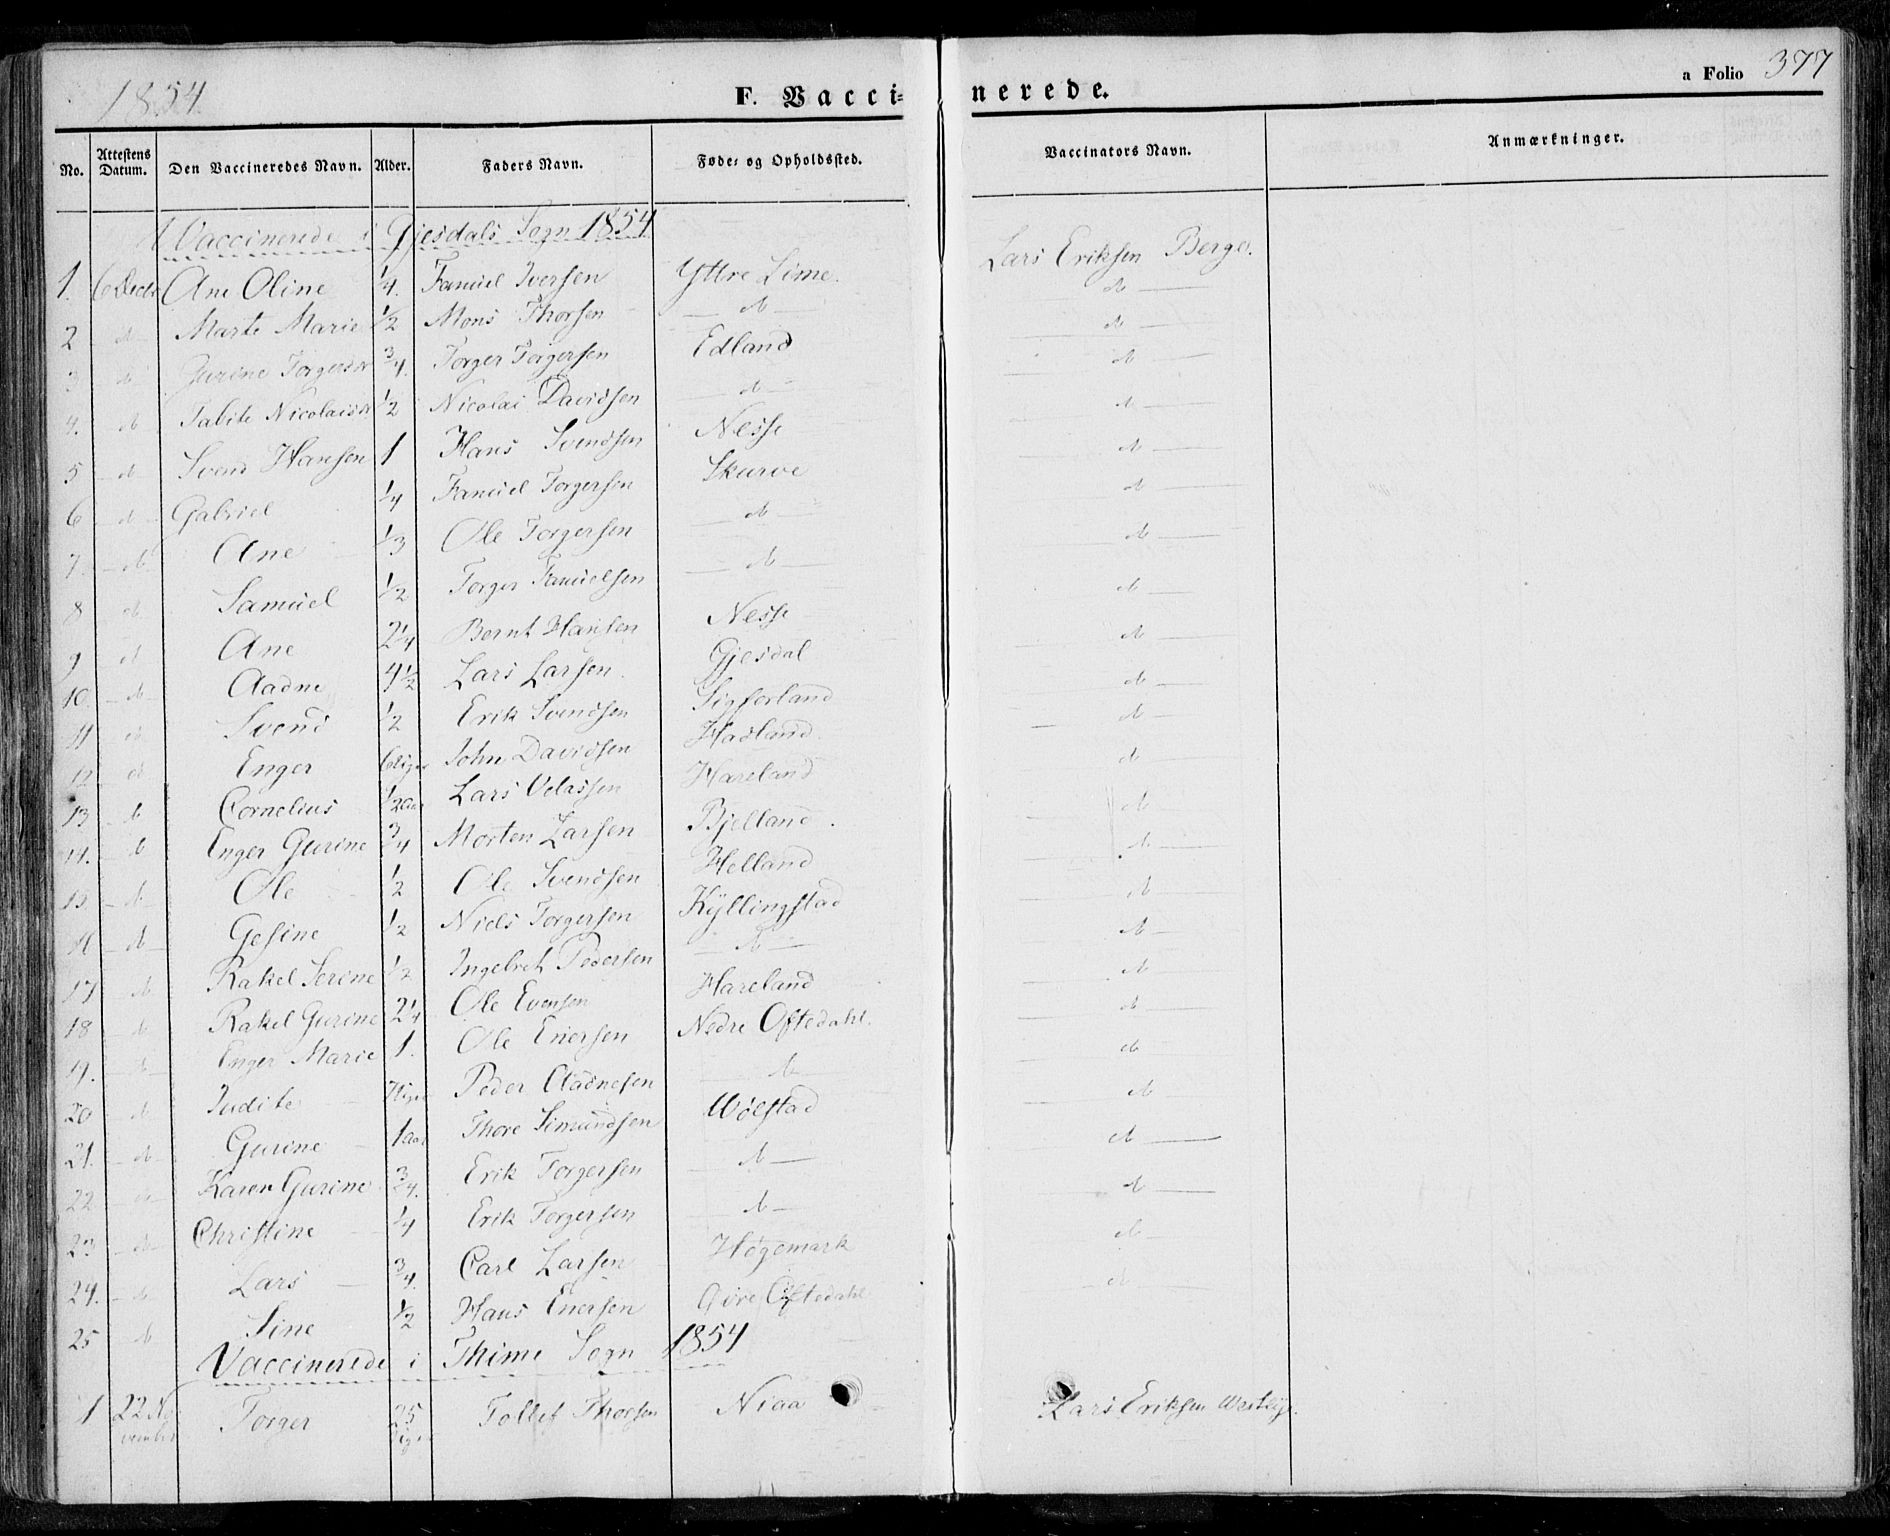 1854 F. Vacci= nerede. a Folio 377
No. Attestens Datum. Den Vaccineredes Navn. Alder. Faders Navn. Føde= og Opholdssted. Vaccinators Navn. Anmærkninger.
Vaccinerede i Gjesdals Sogn 1854
1. 6 Decbr Ane Oline 1/4. Samuel Iversen Yttre Lime. Lars Eriksen Berge.
2 d Marte Marie 1/2 Mons Thorsen d d
3 d Gurine Torgersdr 3/4. Torger Torgersen Edland d
4. d Tabite Nicolaisdr 1/2 Nicolai Davidsen d d
5 d Svend Hansen 1 Hans Svendsen Nesse d
6 d Gabriel 1/4 Samuel Torgersen Skurve d
7. d Ane 1/3 Ole Torgersen d d
8 d Samuel 1/2 Torger Samuelsen d d
9 d Ane 2 1/4 Bernt Hansen Nesse d
10 d Aadne 4 1/2 Lars Larsen Gjesdal d
11 d Svend 1/2 Erik Svendsen Sigferland d
12 d Enger 6 Uger John Davidsen Hadland. d
13 d Cornelius 1/2 Aar Lars Velassen Hareland d
14. d Enger Gurine 3/4 Morten Larsen Bjelland. d
15 d Ole 1/2 Ole Svendsen Helland d
16 d Gesine 1/2 Niels Torgersen Kÿllingstad d
17 d Rakel Serine 1/2 Ingebret Pedersen d d
18 d Rakel Gurine 2 1/4 Ole Evensen Hareland d
19. d Enger Marie 1. Ole Enersen Nedre Oftedahl. d
20 d Judite Uger Peder Aadnesen d d
21. d Gurine 1 Aar Thore Simundsen Wølstad d
22 d Karen Gurine 3/4. Erik Torgersen d d
23 d Christine 1/4 Erik Torgersen d d
24. d Lars 3/4. Carl Larsen Høgemark d
25 d Sine 1/2 Hans Enersen Øvre Oftedahl d
Vaccinerede i Thime Sogn 1854
1 22 November Torger 25 Uger Tollef Thorsen Niaa Lars Eriksen